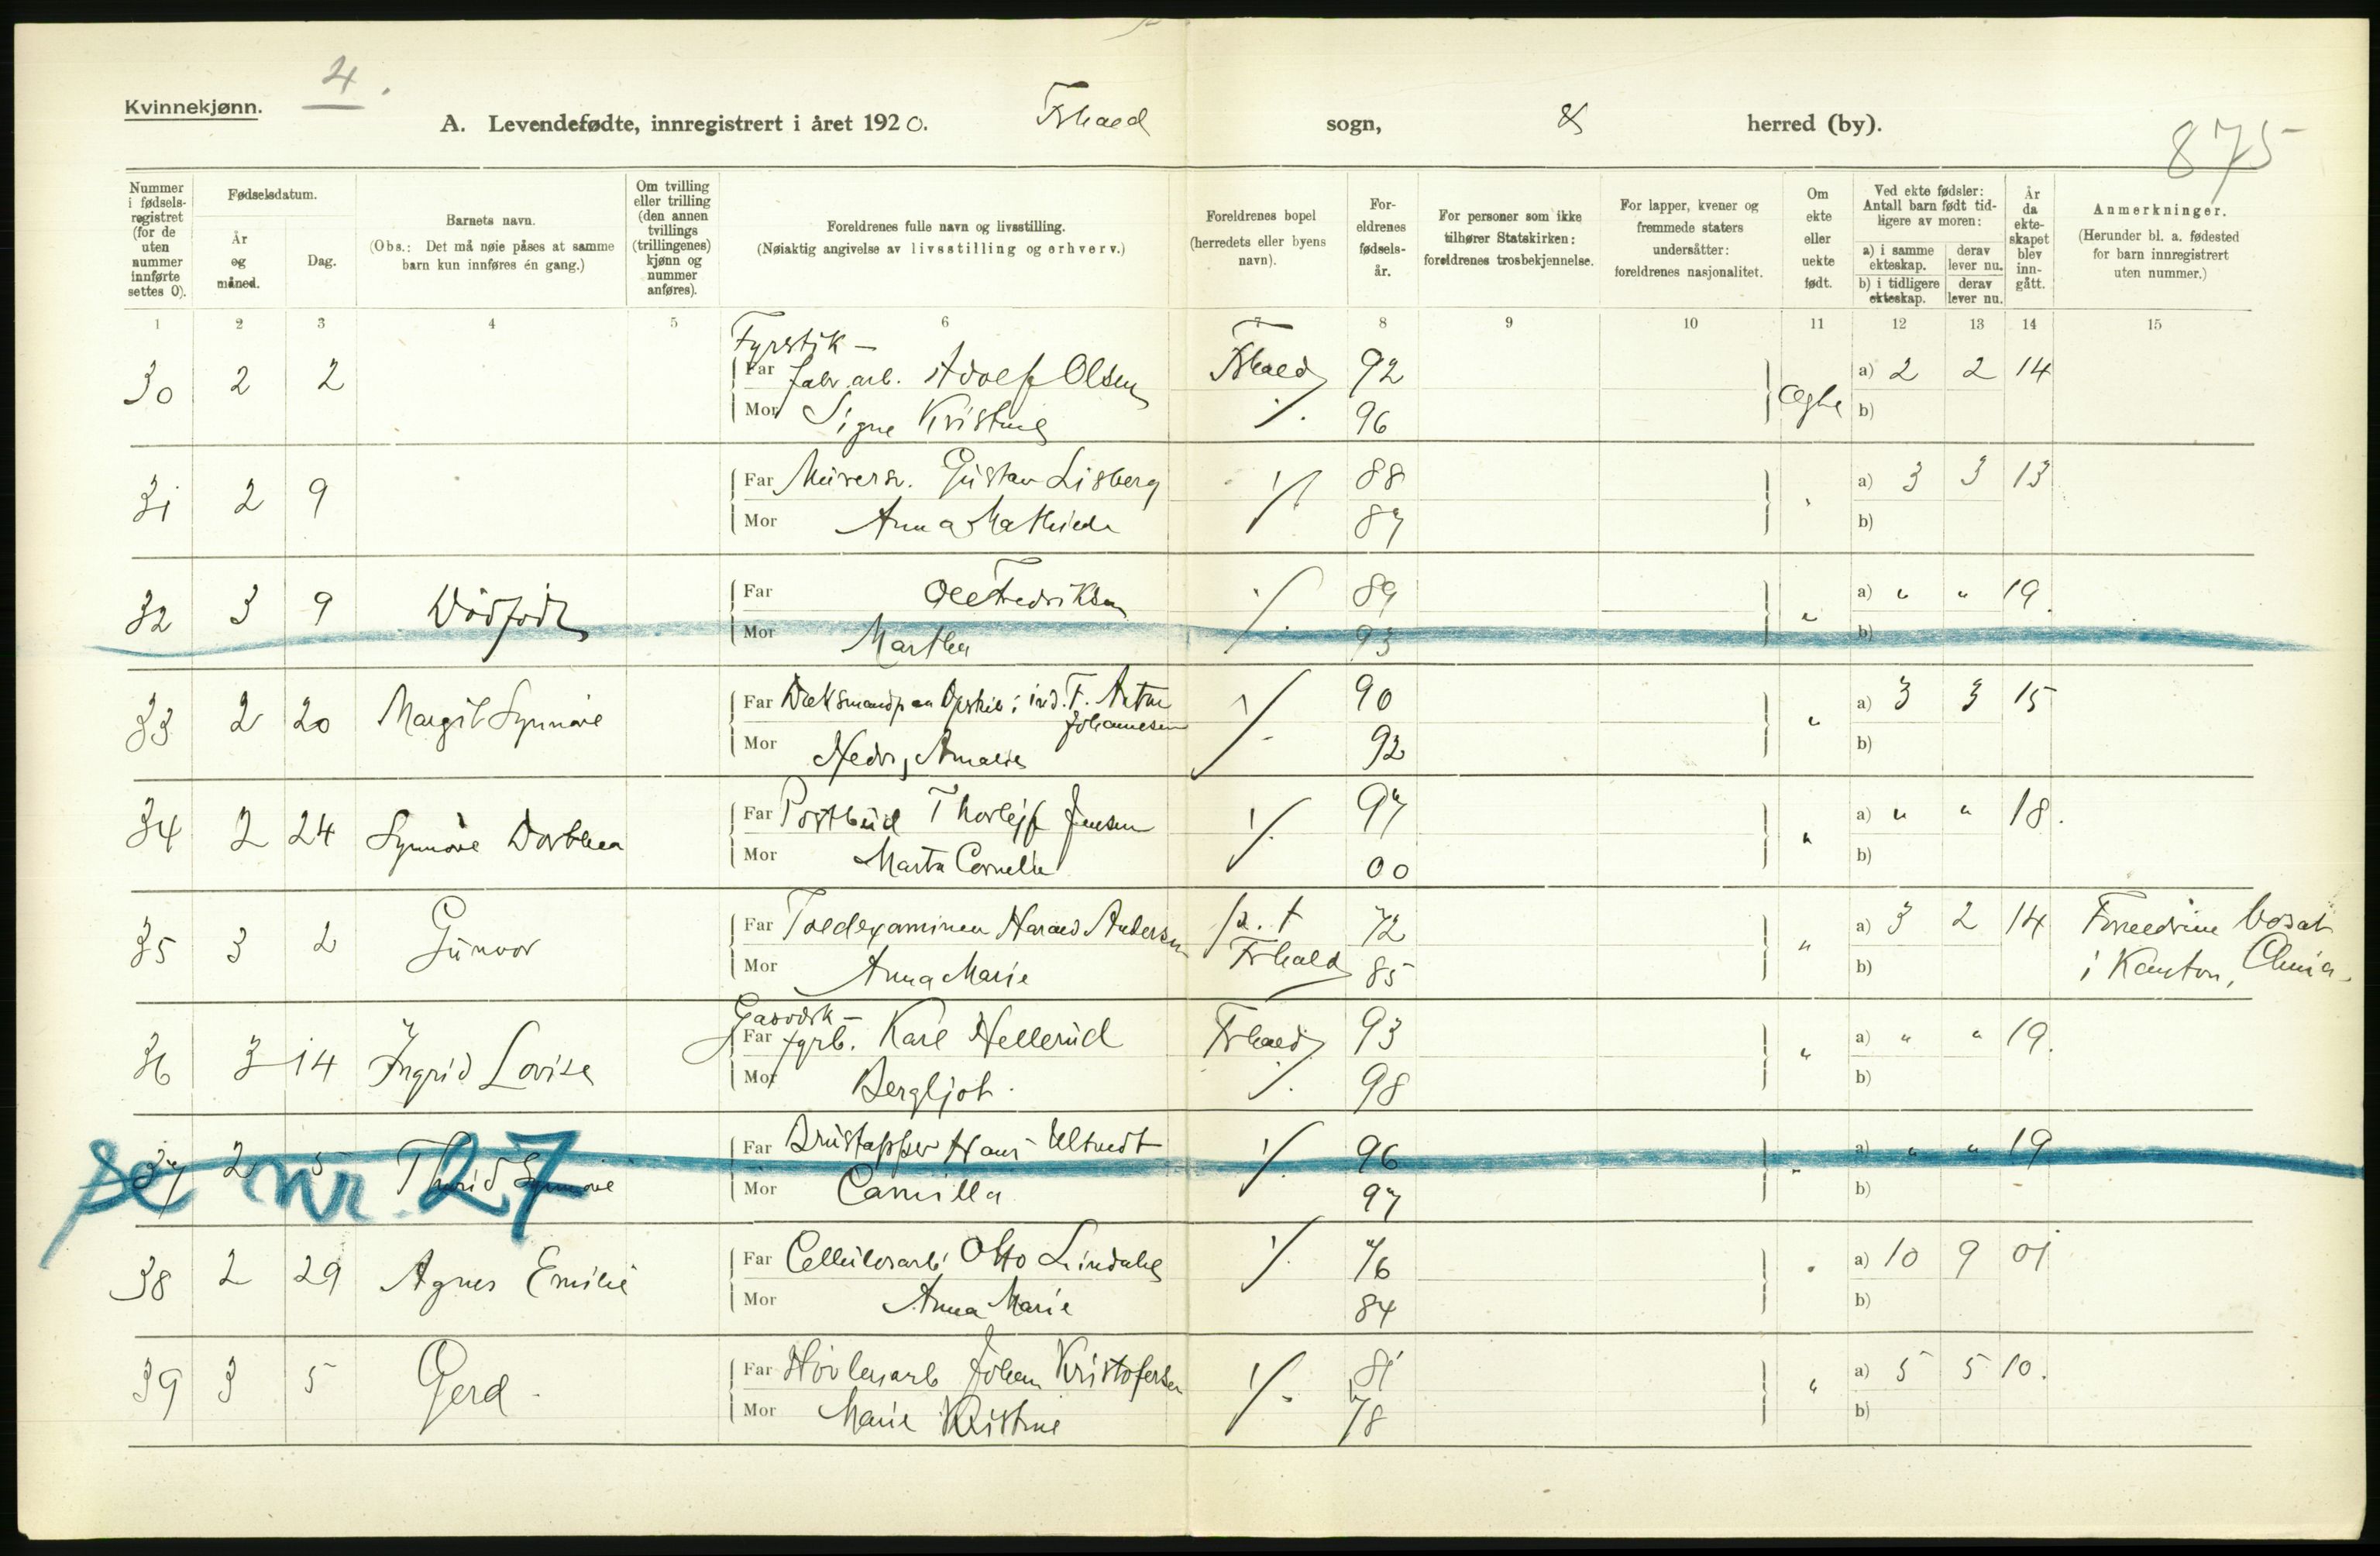 4.
Kvinnekjønn.
A. Levendefødte, innregistrert i året 1920. Frhald sogn, & herred (by).
875
Nummer i fødsels-registret (for de uten nummer innførte settes 0).
Fødselsdatum.
År og måned.
Dag.
Barnets navn.
(Obs.: Det må nøie påses at samme barn kun innføres én gang.)
Om tvilling eller trilling (den annen tvillings (trillingenes) kjønn og nummer anføres).
Foreldrenes fulle navn og livsstilling.
(Nøiaktig angivelse av livsstilling og erhverv.)
Foreldrenes bopel (herredets eller byens navn).
For-eldrenes fødsels-år.
For personer som ikke tilhører Statskirken: foreldrenes trosbekjennelse.
For lapper, kvener og fremmede staters undersåtter: foreldrenes nasjonalitet.
Om ekte eller uekte født.
Ved ekte fødsler: Antall barn født tid-ligere av moren:
a) i samme ekteskap.
derav lever nu.
b) i tidligere ekteskap.
derav lever nu.
År da ekte-skapet blev inn-gått.
Anmerkninger.
(Herunder bl. a. fødested for barn innregistrert uten nummer.)
1 2 3 4 5 6 7 8 9 10 11 12 13 14 15
Fyrstik-
30 2 2 Far fabr. arb. Adolf Olsen Frhald 92 Egte a) 2 2 14
Mor Signe Kristine ./. 96 b)
31 2 9 Far Murersv. Gustav Lisberg ./. 88 " a) 3 3 13
Mor Anna Mathilde 87 b)
32 3 9 Dødfødt Far Ole Fredriksen ./. 89 " a) " " 19.
Mor Martha 93 b)
33 2 20 Margit Synnøve Far Anton ./. 90 " a) 3 3 15
Johannesen
Mor Amalie 92 b)
34 2 24 Synnøve Dorthea Far Postbud Thorleif Jensen ./. 97 " a) " " 18.
Mor Marta Cornelia 00 b)
35 3 2 Gunvor Far Toldexaminen Harald Andersen p. t 72 " a) 3 2 14 Foreldrene bosat
Mor Anna Marie Frhald 85 b) i Kanton, China.
Gasverk-
36 3 14 Ingrid Lovise Far fyrb. Karl Hellerud Frhald 93 " a) " " 19.
Mor Bergljot ./. 98 b)
37 2 5 Thurid Synnøve Far Hans Ulstvedt ./. 96 " a) " " 19
se nr. 27
Mor Camilla 97 b)
38 2 29 Agnes Emilie Far Cellulosearb. Otto Lindahl ./. 76 " a) 10 9 01
Mor Anna Marie 84 b)
39 3 5 Gerd Far Høvleriarb Johan Kristofersen ./. 81 " a) 5 5 10.
Mor Marie Kristine 78 b)